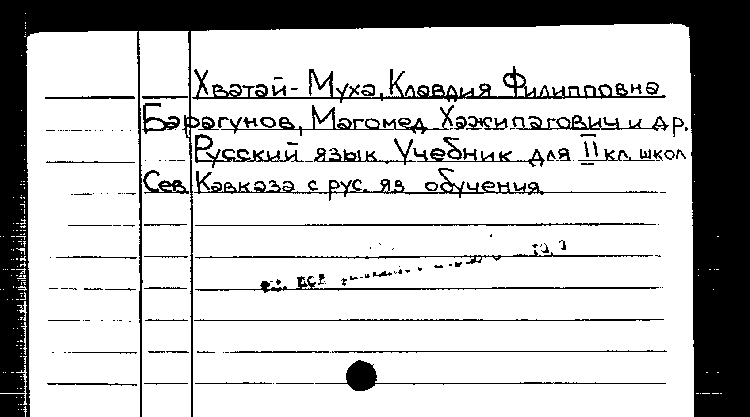 Хватай-Муха, Клавдия Филипповна
Барагунов, Магомед Хажипагович и др.
Русский язык. Учебник для II кл. школ
Сев. Кавказа с рус. яз. обучения.